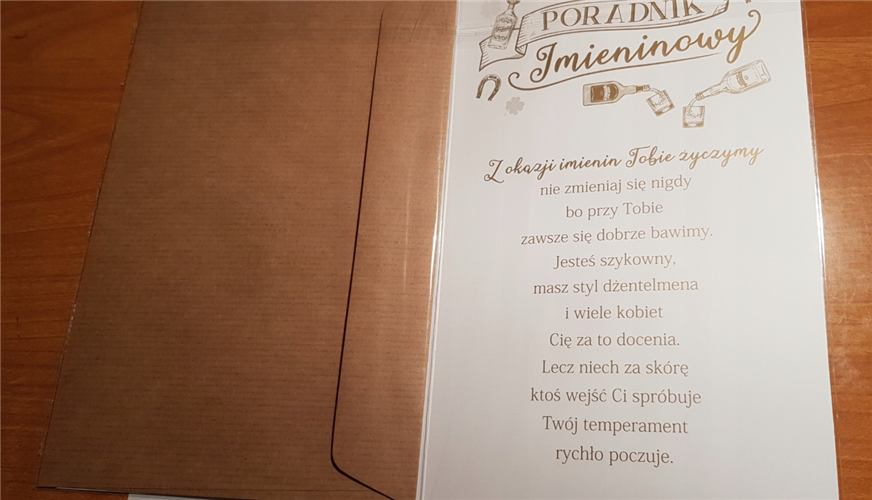 PORADNIK
Imieninowy
Z okazji imienin Tobie życzymy
nie zmieniaj się nigdy
bo przy Tobie
zawsze się dobrze bawimy.
Jesteś szykowny,
masz styl dżentelmena
i wiele kobiet
Cię za to docenia.
Lecz niech za skórę
ktoś wejść Ci spróbuje
Twój temperament
rychło poczuje.